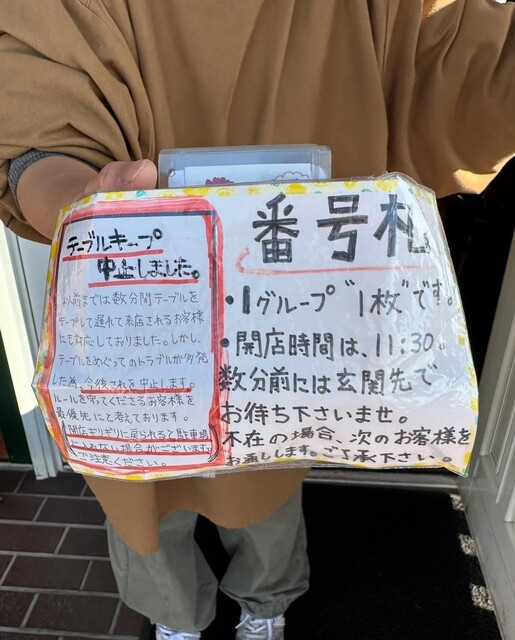 テーブルキープ
中止しました。
以前までは数分間テーブルを
キープして遅れて来店されるお客様
にも対応しておりました。しかし、
テーブルをめぐってのトラブルが多発
した為、今後これを中止します。
ルールを守ってくださるお客様を
最優先にと考えております。
開店ギリギリに戻られると駐車場
に入れない場合がございます。
ご注意ください。
番号札
・1グループ"1枚"です。
・開店時間は、11:30。
数分前には玄関先で
お待ち下さいませ。
不在の場合、次のお客様を
お通しします。ご了承下さい。